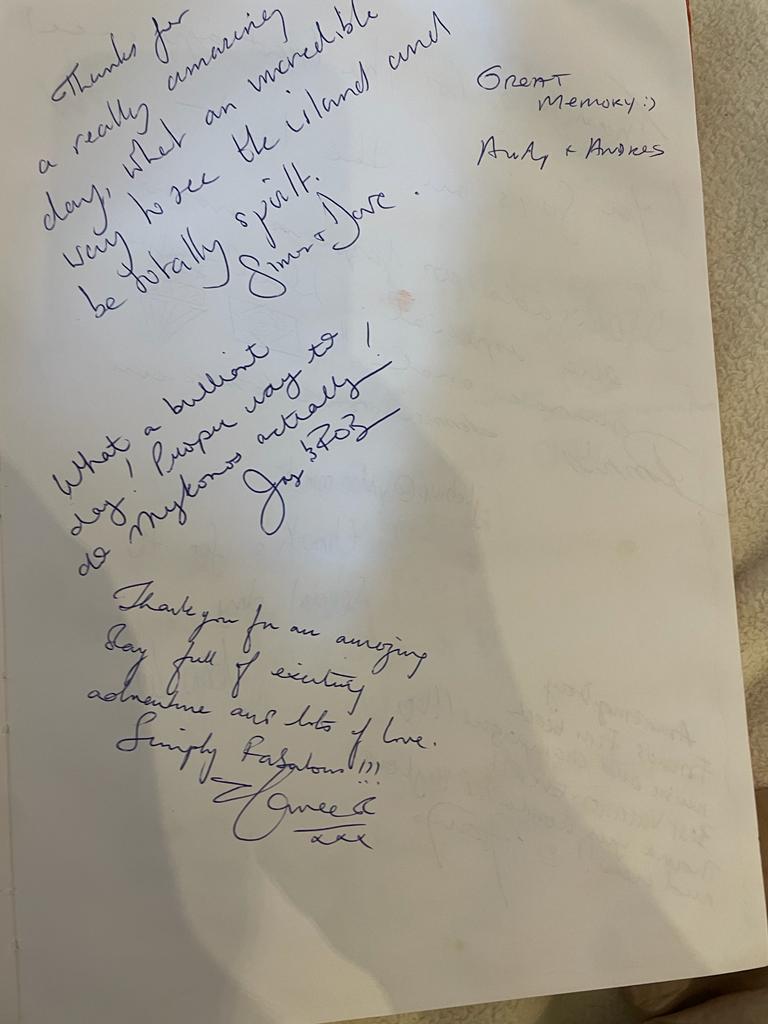 Thanks for
a really amazing
day, what an incredible
way to see the island and
be totally spoilt.
Simon + Dave.
GREAT
MEMORY :)
ANDY + ANDRES
What a brilliant
day! Proper way to
do Mykonos actually!
Jay & ROB
Thank you for an amazing
day full of exciting
adventure and lots of love.
Simply Fabulous!!!
xxx